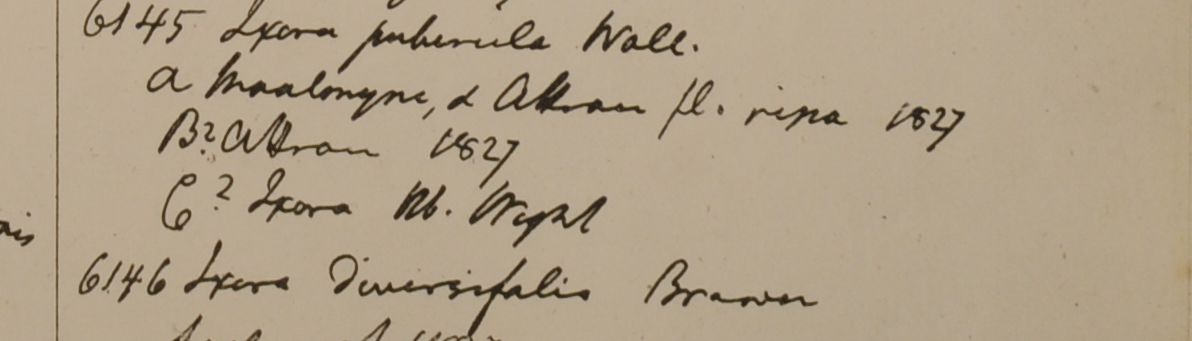 6145 Ixora puberula Wall.
a Maalmyne, & Attran fl. ripa 1827
B? Attran 1827
C? Ixora Hb. Wight
6146 Ixora diversifolia